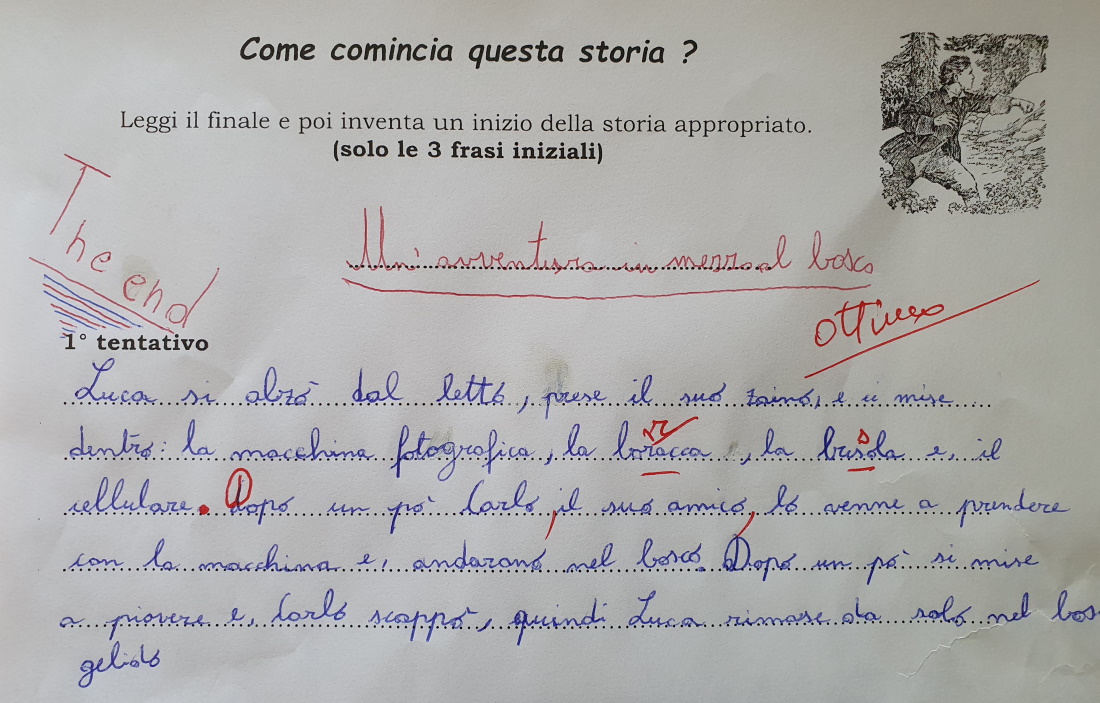 Come comincia questa storia ?
Leggi il finale e poi inventa un inizio della storia appropriato.
(solo le 3 frasi iniziali)
The end
Un' avventura in mezzo al bosco
ottimo
1° tentativo
Luca si alzò dal letto, prese il suo zaino, e ci mise
dentro: la macchina fotografica, la borracca, la busola e, il
cellulare. Dopo un pò Carlo, il suo amico, lo venne a prendere
con la macchina e, andarono nel bosco. Dopo un pò si mise
a piovere e, Carlo scappò, quindi Luca rimase da solo nel bos
gelido